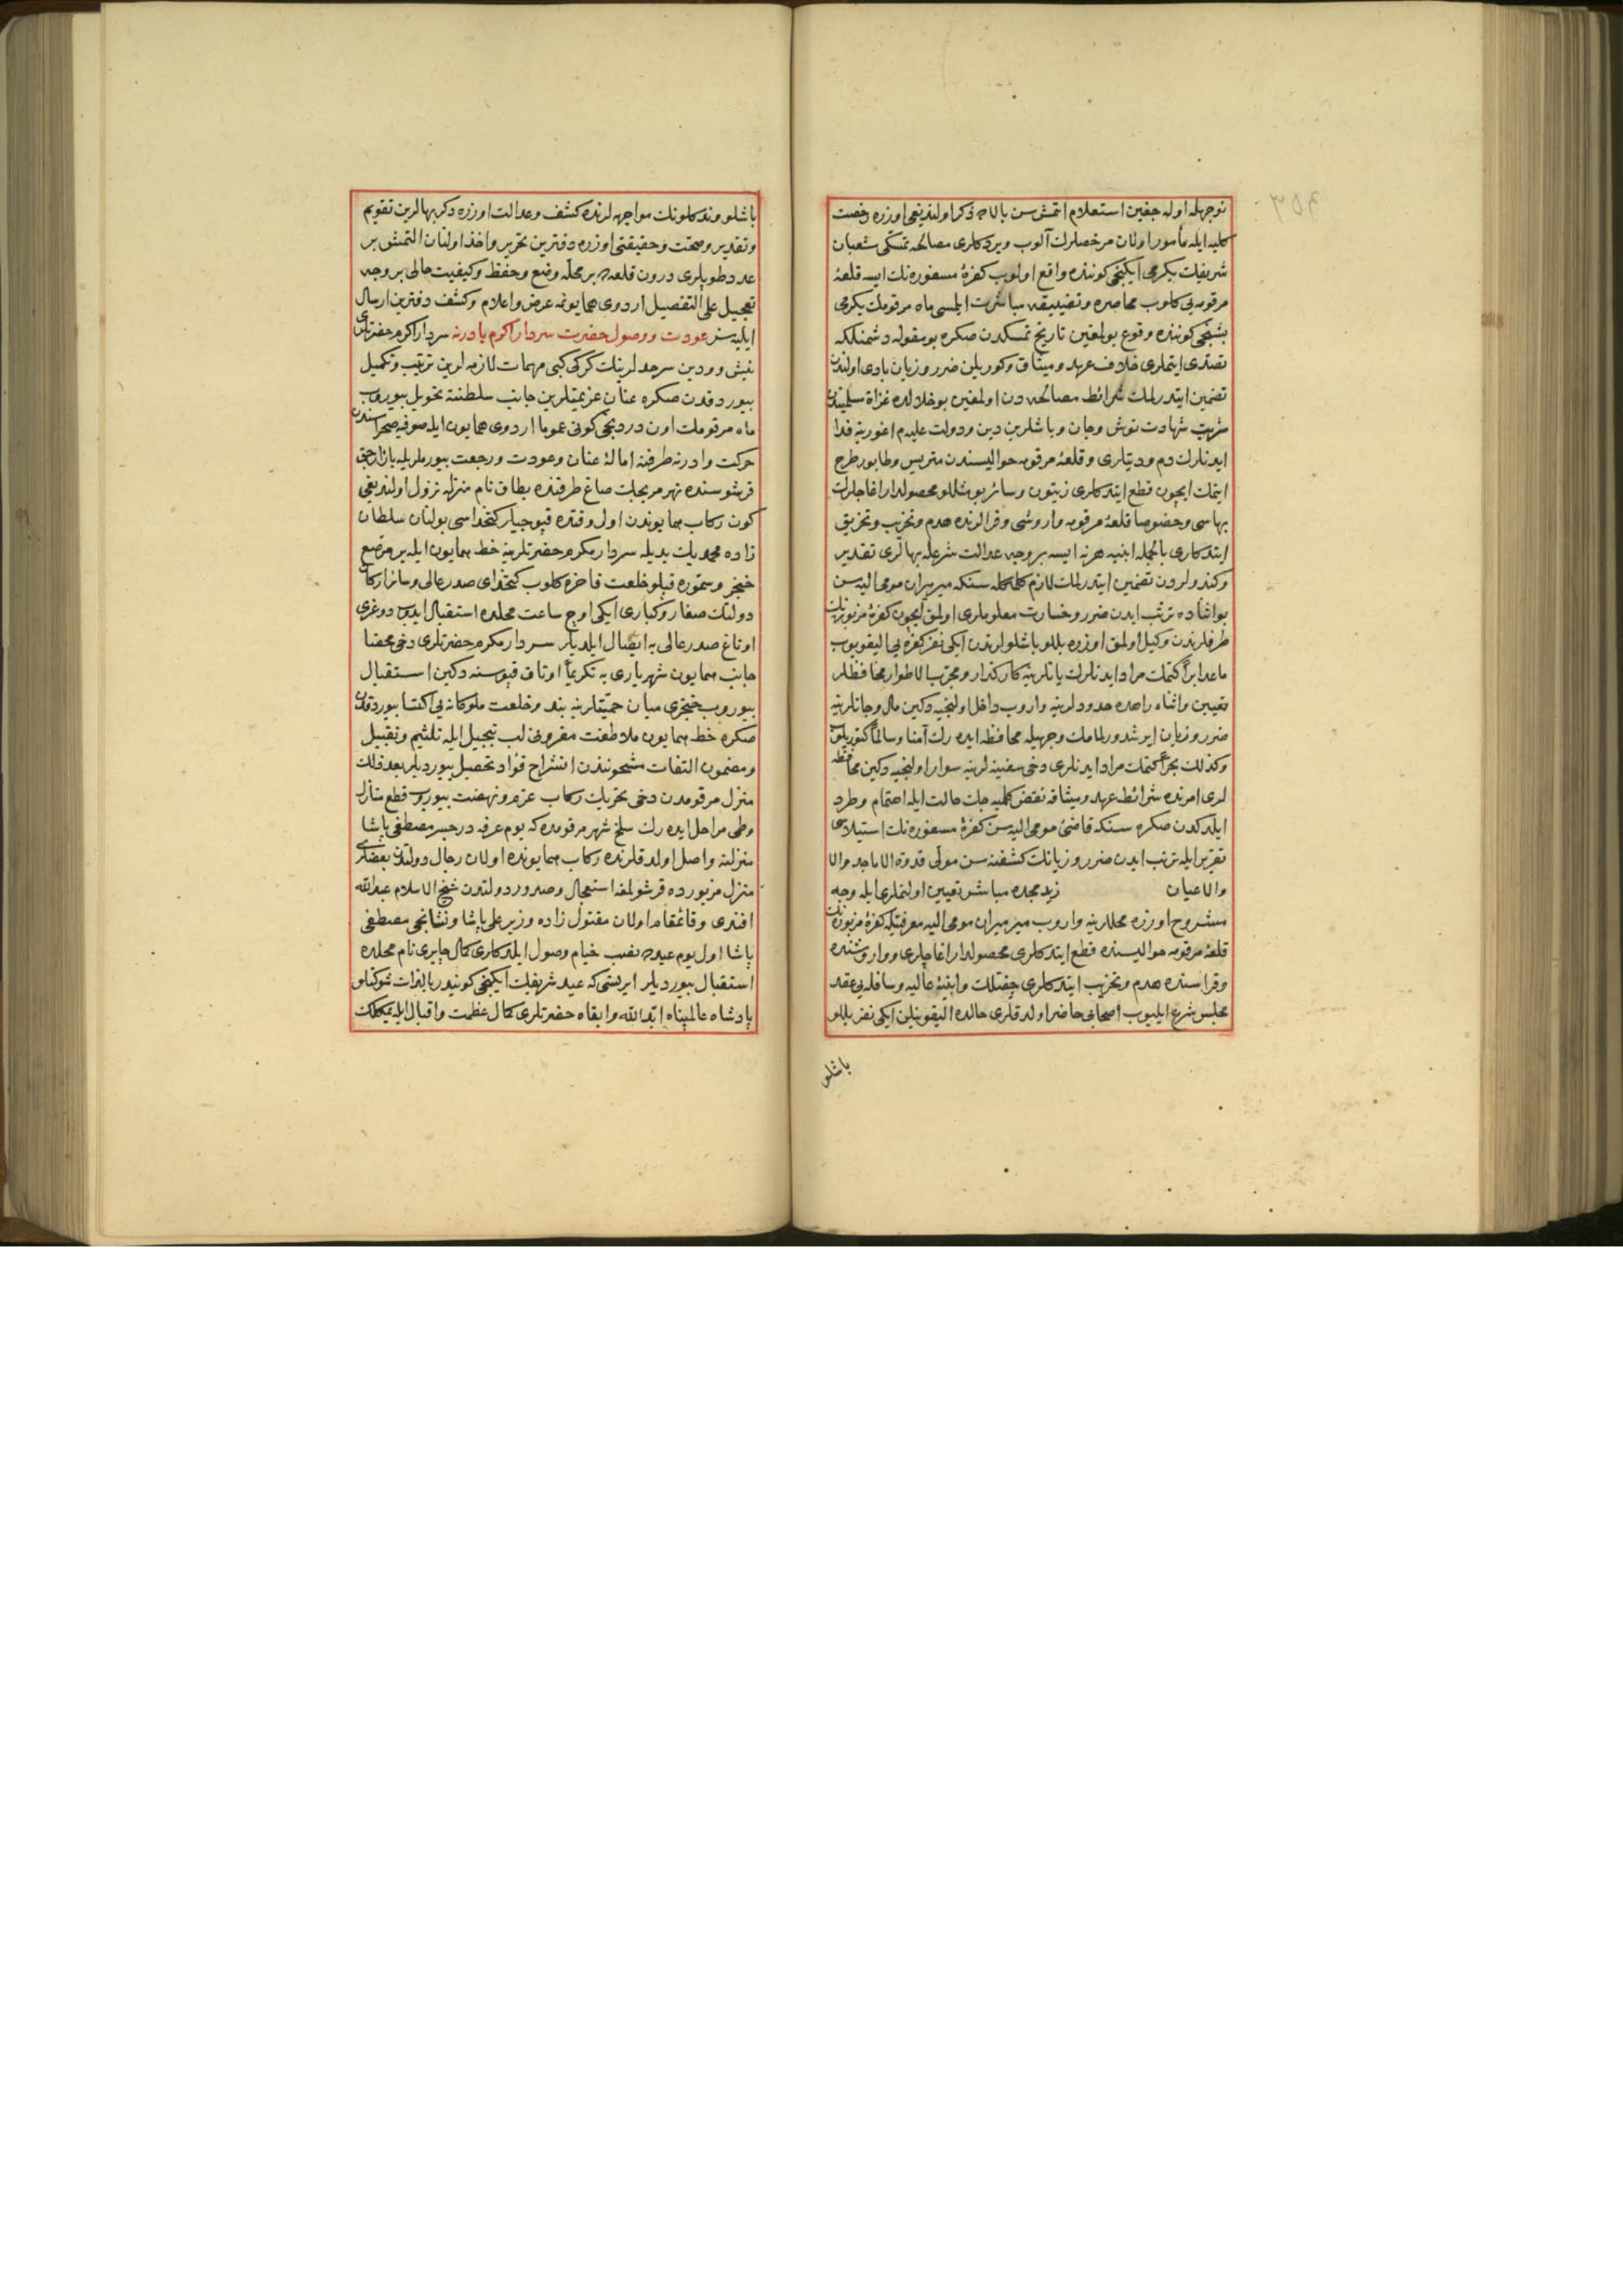 نوجهله اوله جغین استعلام اتمش سن بالاده ذکر اولندیغی اوزره رخصت
کلیه ایله مأمور اولان مرخصلرك آلوب ویردکلری مصالحه تمسکی شعبان
شریفك یکرمی ایکنجی کوننده واقع اولوب کفرهٔ مسفوره نك ایسه قلعهٔ
مرقومه یی کلوب محاصره وتضییقه مباشرت ایلمسی ماه مرقومك یکرمی
بشنجی کوننده وقوع بولمغین تاریخ تمسکدن صکره بو مقوله دشمنلکه
تصدی ایتملری خلاف عهد ومیثاق وکوریلن ضرر وزیان بادی اولنلره
تضمین ایتدرلمك شرائط مصالحه دن اولمغین بو خلالده غزاة مسلمیندن
شربت شهادت نوش وجان وباشلرین دین ودولت علیه م اغورینه فدا
ایدنلرك دم ودیتلری وقلعهٔ مرقومه حوالیسندن متریس وطابور طرح
ایتمك ایچون قطع ایتدکلری زیتون وسائر بو مثللو محصولدار اغاجلرك
بهاسی وخصوصا قلعهٔ مرقومه واروشی وقرالرنده هدم وتخریب وتحریق
ایتدکلری بالجمله ابنیه هر نه ایسه بر وجه عدالت شرعله بهالری تقدیر
وکندولردن تضمین ایتدرلمك لازم کلمکله سنکه میرمیران مومی الیه سن
بو اثناده ترتب ایدن ضرر وخسارت معلوملری اولمق ایچون کفرهٔ مزبوره نك
طرفلرندن وکیل اولمق اوزره بللو باشلولرندن ایکی نفر کفره یی الیقویوب
ماعدا براً کتمك مراد ایدنلرك یانلرینه کارکذار ومجرب الاطوار محافظلر
تعیین واثناء راهده حدودلرینه واروب داخل اولنجیه دکین مال وجانلرینه
ضرر وزیان ایرشدورلمامك وجهیله محافظه ایده رك آمنا وسالماً کتوریلوب
وکذلك بحراً کتمك مراد ایدنلری دخی سفینه لرینه سوار اولنجیه دکین محافظه
لری امرنده شرائط عهد ومیثاقه نقض کلمیه جك حالت ایله اهتمام وطرد
ایلدکدن صکره سنکه قاضئ مومی الیه سن کفرهٔ مسفوره نك استیلاسی
تقریر ایله ترتب ایدن ضرر وزیانك کشفنه سن مولی قدوة الاماجد والا
والاعیان زید مجده مباشر تعیین اولنملری ایله وجه
مشروح اوزره محللرینه واروب میرمیران مومی الیه معرفتیله کفرهٔ مزبوره نك
قلعهٔ مرقومه حوالیسنده قطع ایتدکلری محصولدار اغاجلری وواروشنده
وقراسنده هدم وتخریب ایتدکلری چفتلك وابنیهٔ عالیه وسافله یی عقد
مجلس شرع ایلیوب اصحابی حاضر اولدقلری حالده الیقونیلن ایکی نفر بللو
باشلو
باشلو وندکلونك مواجهه لرنده کشف وعدالت اوزره دکر بهالرین تقویم
وتقدیر وصحت وحقیقتی اوزره دفترین تحریر واخذ اولنان التمش بر
عدد طوپلری درون قلعه ده بر محله وضع وحفظ وکیفیت حالی بر وجه
تعجیل علی التفصیل اردوی همایونمه عرض واعلام وکشف دفترین ارسال
ایلیه سز عودت ووصول حضرت سردار اکرم بادرنه سردار اکرم حضرتلری
نیش وودین سرحدلرینك کرکی کبی مهمات لازمه لرین ترتیب وتکمیل
بیوردقدن صکره عنان عزیمتلرین جانب سلطنته تحویل بیوروب
ماه مرقومك اون دردنجی کونی عموما اردوی همایون ایله صوفیه صحراسندن
حرکت وادرنه طرفنه امالهٔ عنان وعودت ورجعت بیورملریله بازارجق
قرشوسنده نهر مریجك صاغ طرفنده بطاق نام منزله نزول اولندیغی
کون رکاب همایوندن اول وقتده قپوجیلر کتخداسی بولنان سلطان
زاده محمد بك یدیله سردار مکرم حضرتلرینه خط همایون ایله بر مرصع
خنجر وسموره قپلو خلعت فاخره کلوب کتخدای صدر عالی وسائر ارکان
دولتك صغار وکباری ایکی اوچ ساعت محلده استقبال ایدوب دوغری
اوتاغ صدر عالی یه ایصال ایلدیلر سردار مکرم حضرتلری دخی محضا
جانب همایون شهریاری یه تکریماً اوتاق قپوسنه دکین استقبال
بیوروب خنجری میان حمیتلرینه بند وخلعت ملوکانه یی اکتسا بیوردقدن
صکره خط همایون ملاطفت مقرونی لب تبجیل ایله تلثیم وتقبیل
ومضمون التفات مشحونندن انشراح فؤاد تحصیل بیوردیلر بعد ذلك
منزل مرقومدن دخی تحریك رکاب عزم ونهضت بیوروب قطع منازل
وطی مراحل ایده رك سلخ شهر مرقومده که یوم عرفه در جسر مصطفی پاشا
منزلنه واصل اولدقلرنده رکاب همایونده اولان رجال دولتك بعضیلری
منزل مزبورده قرشولمغه استعجال وصدور دولتدن شیخ الاسلام عبدالله
افندی وقائمقام اولان مقتول زاده وزیر علی پاشا ونشانجی مصطفی
پاشا اول یوم عیده نصب خیام وصول ایلدکلری کمال چایری نام محلده
استقبال بیوردیلر ایرتسی که عید شریفك ایکنجی کونیدر بالذات شوکتلو
پادشاه عالمپناه ابّد الله وابقاه حضرتلری کمال عظمت واقبال ایله